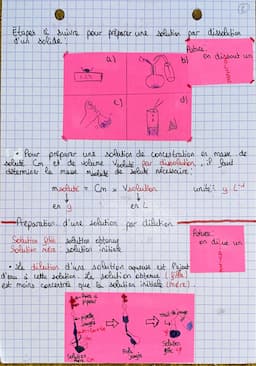 Etapes à suivre pour préparer une solution par dissolution
d'un solide :
a)
b)
c)
d)
en dissout un
• Pour préparer une solution de concentration en masse de
soluté Cm et de volume Vsolution par dissolution, il faut
déterminer la masse msoluté de soluté nécessaire :
msoluté = Cm × Vsolution
unité : g.L⁻¹
en g
en L
Préparation d'une solution par dilution
Solution fille solution obtenue
Solution mère solution initiale
en dilue un
• La dilution d'une solution aqueuse est l'ajout
d'eau à cette solution. La solution obtenue (fille)
est moins concentrée que la solution initiale (mère)
Solution
Fiole
jaugée
Solution
fille